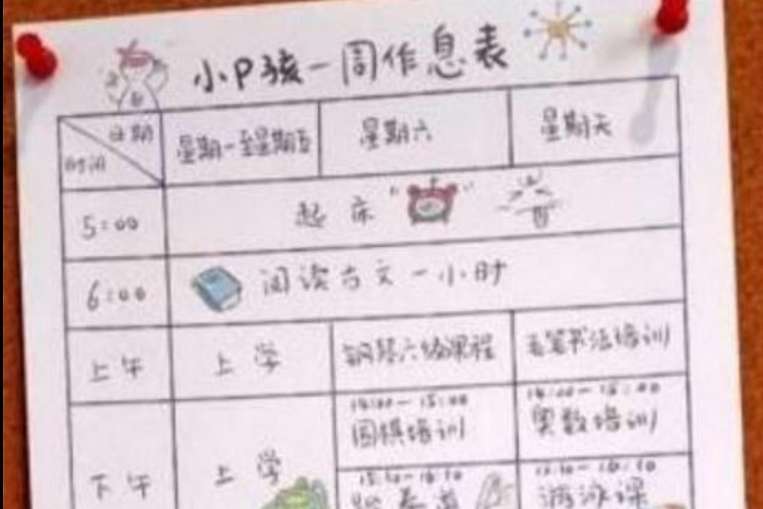 小P孩一周作息表
日期
时间
星期一至星期五 星期六 星期天
5:00 起床
6:00 阅读古文一小时
上午 上学 钢琴六级课程 毛笔书法培训
14:00-15:00 14:00-15:00
围棋培训 奥数培训
下午 上学
跆拳道 游泳课